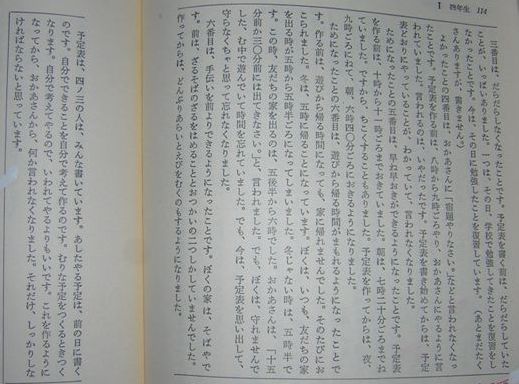 114
Ⅰ 四年生
三番目は、だらだらしなくなったことです。予定表を書く前は、だらだらしていた
ことが、いっぱいありました。一つは、その日、学校で勉強してきたことを復習をし
なかったことです。今は、その日に勉強したことを復習しています。(あとまだたく
さんありますが、書きません。)
よかったことの四番目は、おかあさんに「宿題やりなさい。」などと言われなくなっ
たことです。予定表を作る前は、八時から九時ごろやり、おかあさんにやるように言
われていました。言われるのは、いやだったです。予定表を書き始めてからは、予定
表どおりにやっていることが、わかっていて、言われなくなりました。
ためになったことの五番目は、早ね早おきができるようになったことです。予定表
を作る前は、十時から十一時ごろまでおきていました。朝は、七時二十分ごろまでね
ていました。ですから、ちこくすることもありました。予定表を作ってからは、夜、
九時ごろにねて、朝、六時四〇分ごろにおきられるようになりました。
ためになったことの六番目は、遊びから帰る時間がまもれるようになったことで
す。作る前は、遊びから帰る時間になっても、家に帰れませんでした。そのたびにお
こられました。冬は、五時に帰ることになっています。ぼくは、いつも、友だちの家
を出る時が五時から五時半ごろになってしまいました。冬じゃない時は、五時半で
す。この時、友だちの家を出るのは、五後半から六時でした。おかあさんは、「十五
分前か三〇分前には出てきなさい。」と、言われました。でも、ぼくは、守れませんで
した。む中で遊んでいて時間を忘れていました。でも、今は、予定表を思い出して、
守らなくちゃと思って忘れなくなりました。
六番目は、手伝いを前よりできるようになったことです。ぼくの家は、そばやで
す。前は、ざるそばのざるをはめることとおつかいの二つしかしていませんでした。
作ってからは、どんぶりあらいとえびをむくのもするようになりました。
予定表は、四ノ三の人は、みんな書いています。あしたやる予定は、前の日に書く
のです。自分でできることを自分で考えて作るのです。むりな予定をつくるときつく
なります。自分で考えてやるので、いわれてやるよりもいいです。これを作るように
なってから、おかあさんから、何か言われなくなりました。それだけ、しっかりしな
ければならないと思っています。